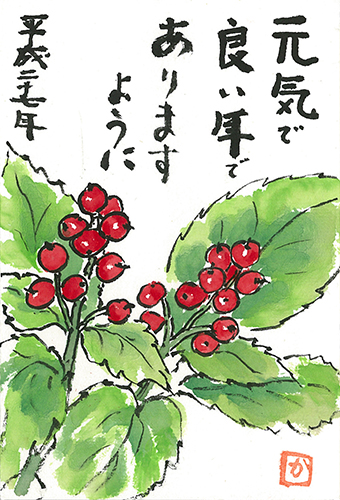 元気で
良い年で
あります
ように
平成二十七年
か